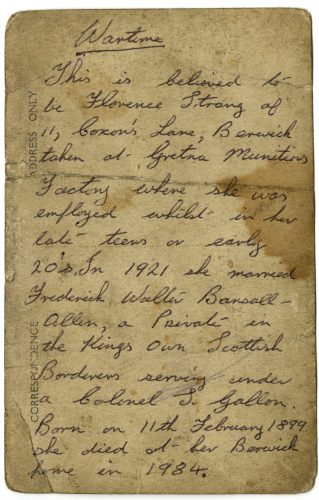 Wartime
This is believed to
be Florence Strang of
11, Coxon's Lane, Berwick
taken at Gretna Munitions
Factory where she was
employed whilst in her
late teens or early
20's. In 1921 she married
Frederick Walter Bansall-
Allen, a Private in
the Kings Own Scottish
Borderers serving under
a Colonel J. Gallon.
Born on 11th February 1899
she died at her Berwick
home in 1984.
ADDRESS ONLY
CORRESPONDENCE